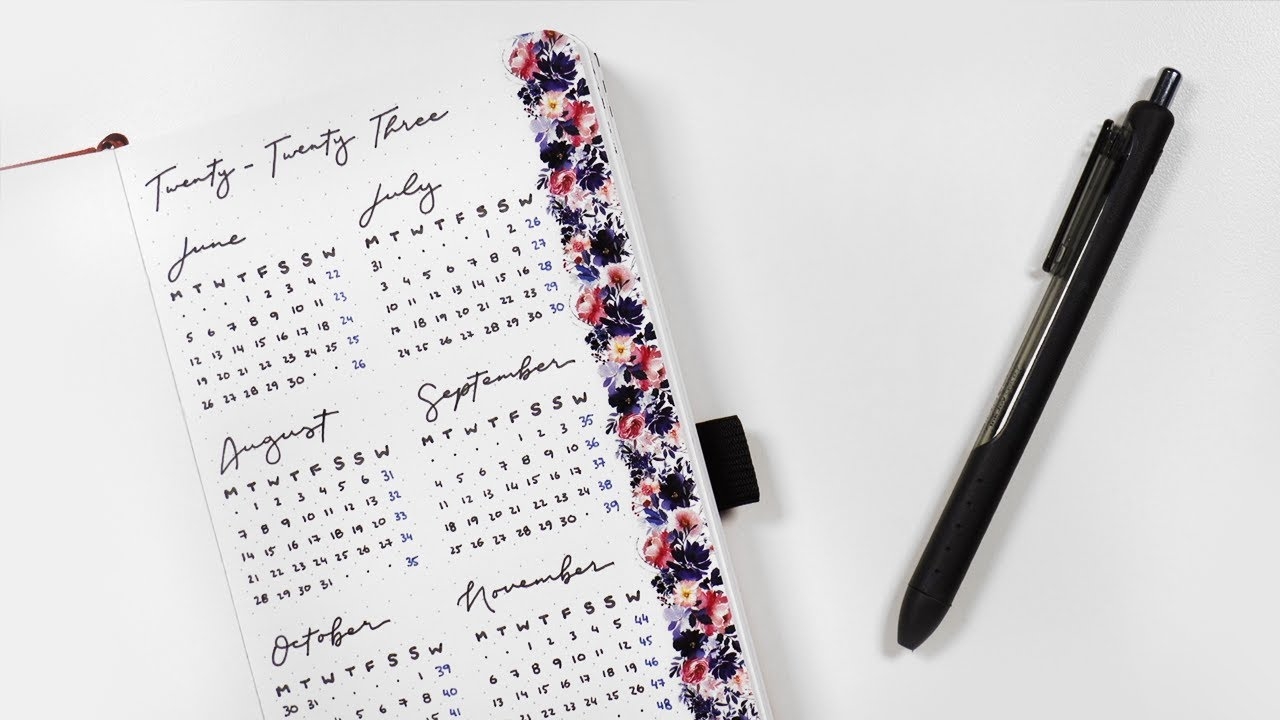 Twenty - Twenty Three
June
M T W T F S S W
· · · 1 2 3 4 22
5 6 7 8 9 10 11 23
12 13 14 15 16 17 18 24
19 20 21 22 23 24 25 25
26 27 28 29 30 · · 26
July
M T W T F S S W
31 · · · · 1 2 26
3 4 5 6 7 8 9 27
10 11 12 13 14 15 16 28
17 18 19 20 21 22 23 29
24 25 26 27 28 29 30 30
August
M T W T F S S W
· 1 2 3 4 5 6 31
7 8 9 10 11 12 13 32
14 15 16 17 18 19 20 33
21 22 23 24 25 26 27 34
28 29 30 31 · · · 35
September
M T W T F S S W
· · · · 1 2 3 35
4 5 6 7 8 9 10 36
11 12 13 14 15 16 17 37
18 19 20 21 22 23 24 38
25 26 27 28 29 30 · 39
October
M T W T F S S W
30 31 · · · · 1 39
5 6 7 8 40
41
November
M T W T F S S W
· · 1 2 3 4 5 44
6 7 8 9 10 11 12 45
13 14 15 16 17 18 19 46
22 23 24 25 26 47
48